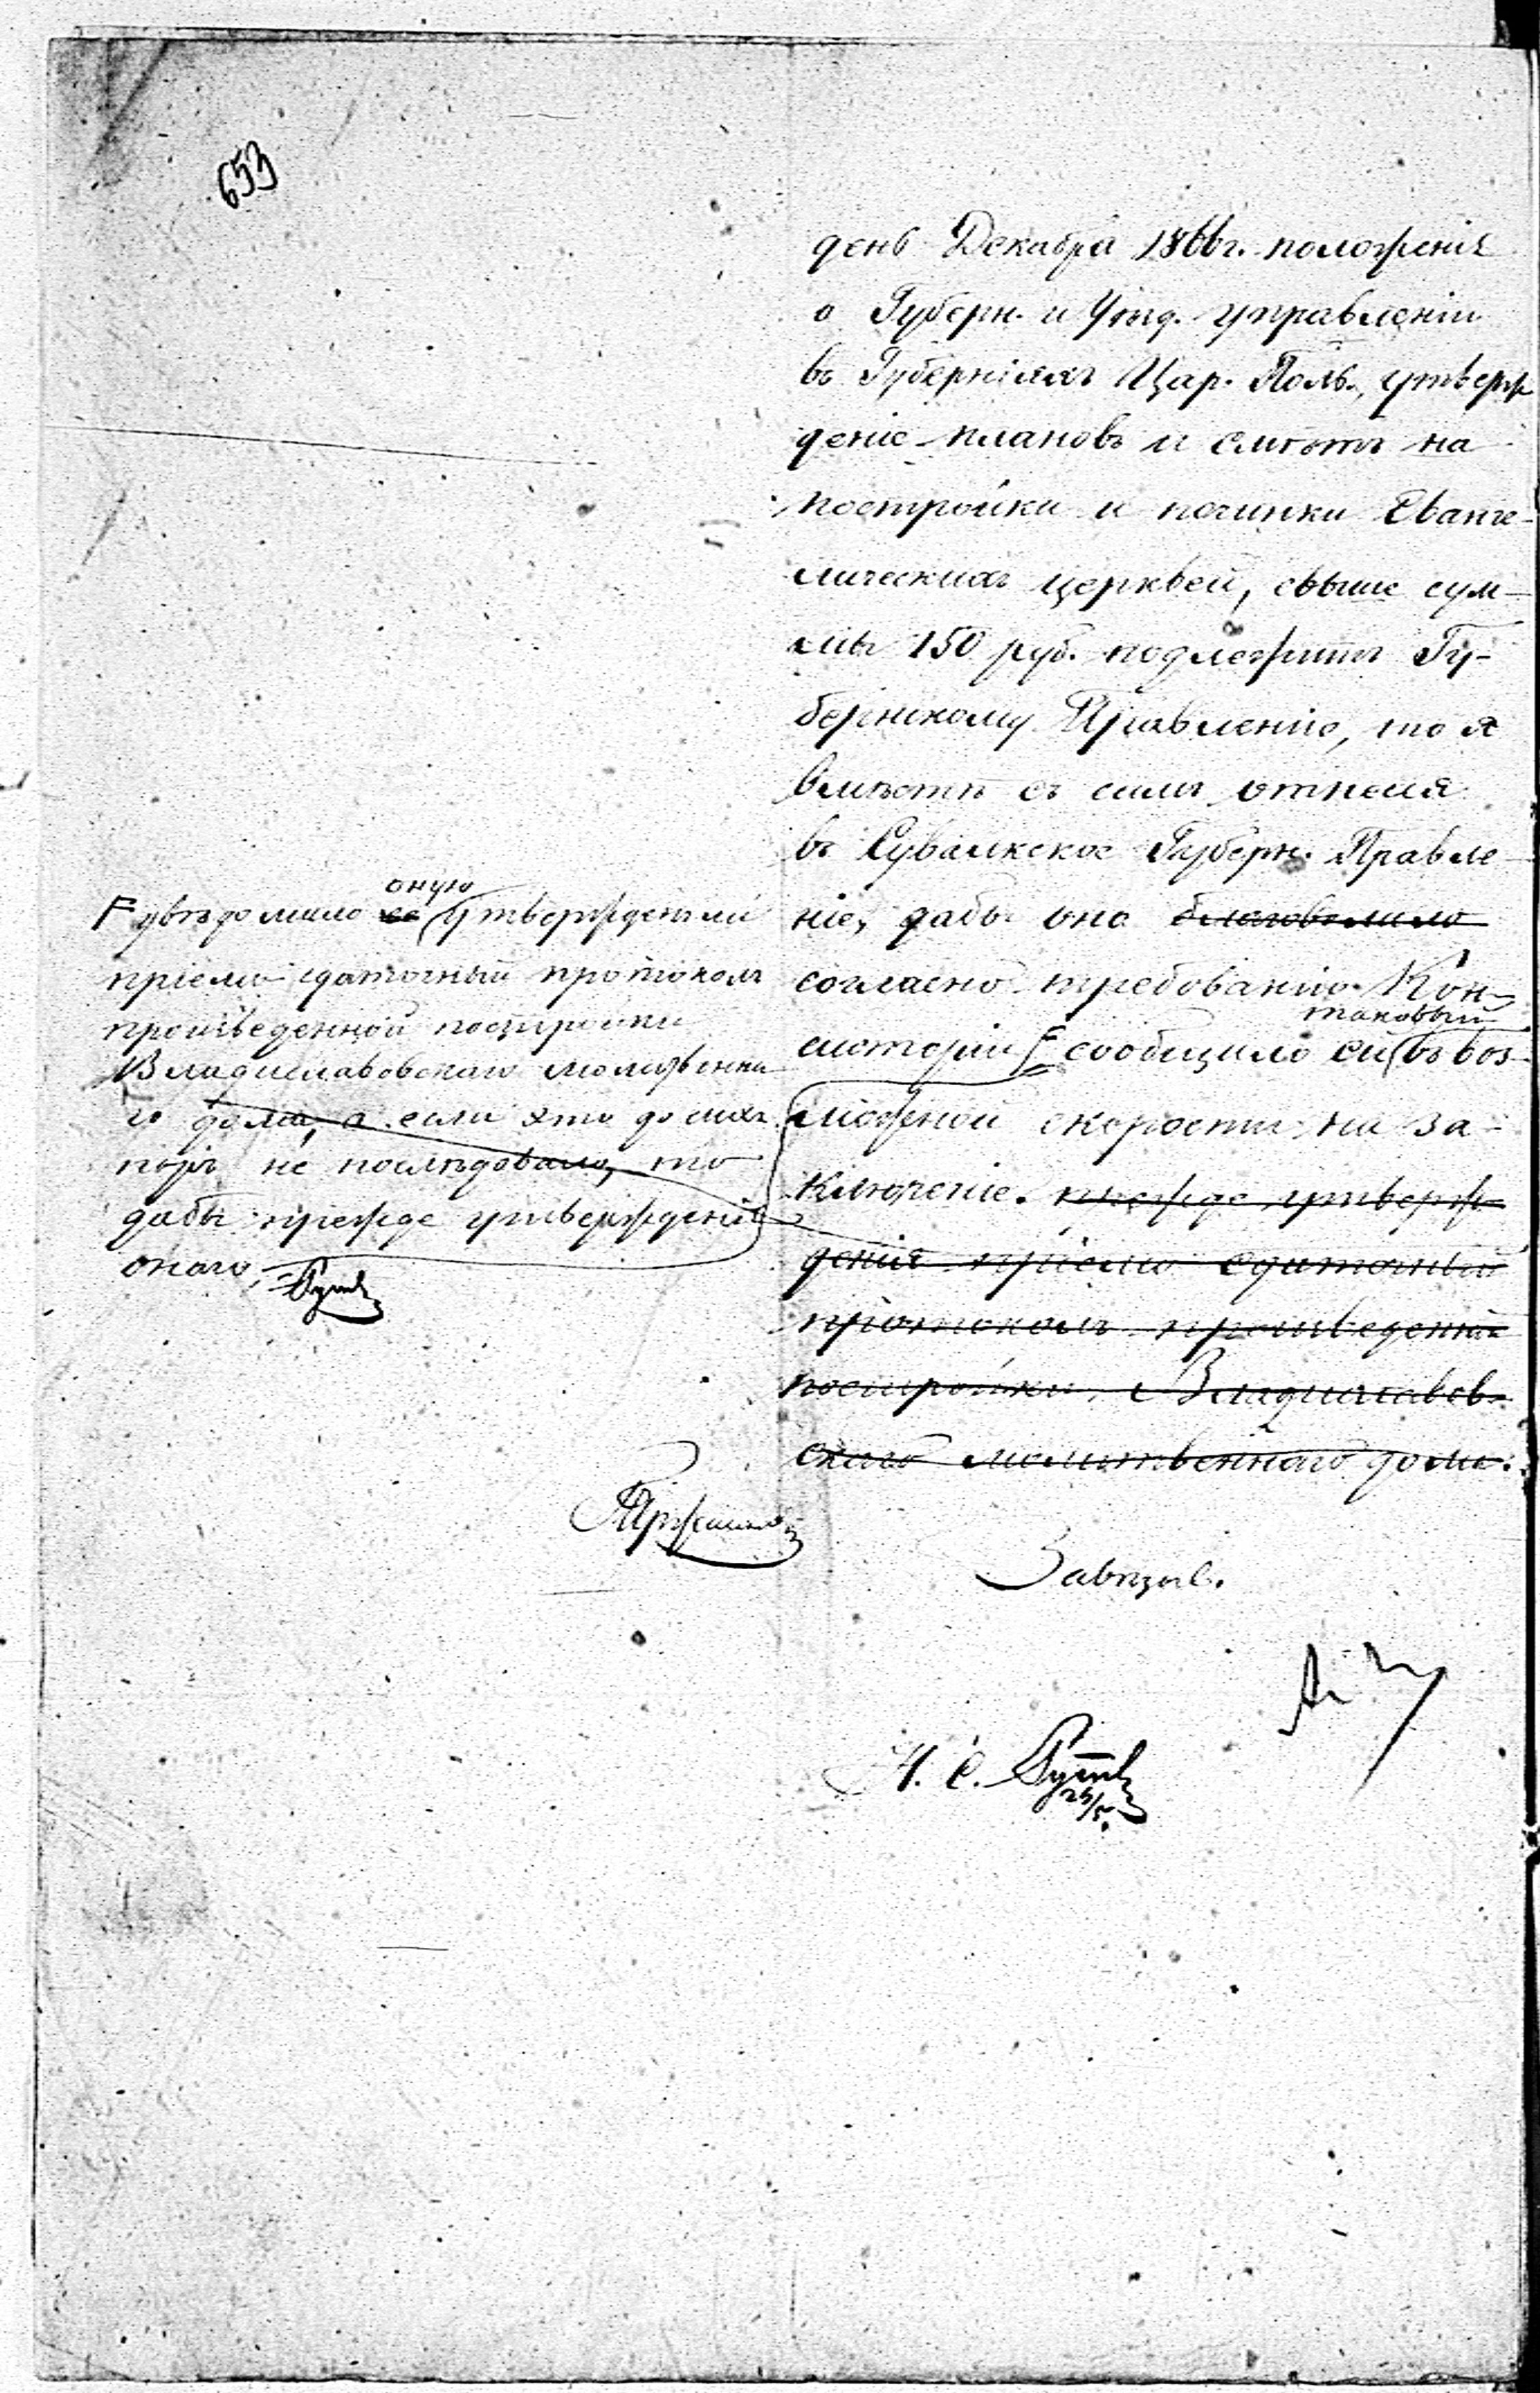 653
день Декабря 1866г. положенія
о Губерн. и Уѣзд. управленіи
въ Губерніяхъ Цар. Поль., утверж
деніе плановъ и смѣтъ на
постройки и починки Еванге-
лическихъ церквей, свыше сум-
мы 150 руб. подлежитъ Гу-
бернскому Правленію, то я
вмѣстѣ съ симъ отнесся
въ Сувалкское Губерн. Правле-
ніе, дабы оно благоволило
согласно требованію Кон-
таковый
систоріи сообщило ей въ воз-
можной скорости на за-
ключеніе. прежде утверж
денія пріемо сдаточный
протоколъ произведенной
постройки Владиславов-
скаго молитвеннаго дома.
оную
увѣдомило ее утвержденъ ли
пріемо сдаточный протоколъ
произведенной постройки
Владиславовскаго молитвенна
го дома, а если это до сихъ
поръ не послѣдовало, то
дабы прежде утвержденія
онаго,
Завѣдыв.
Н. С.
25/5.